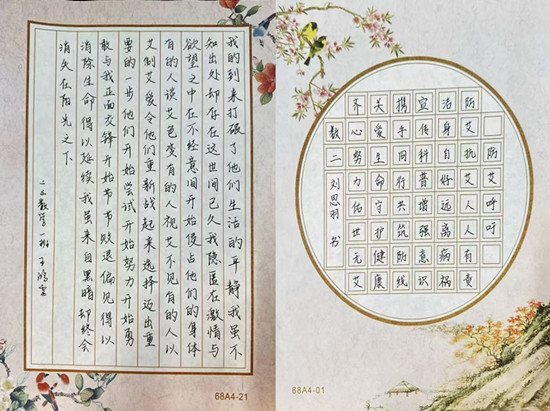 我的到来打破了他们生活的平静我虽不
知出处却存在这世间已久我隐匿在激情与
欲望之中在不经意间开始侵占他们的身体
有的人谈艾色变有的人视艾不见有的人以
艾制艾爱令他们重新战起来选择迈出重
要的一步他们开始尝试开始努力开始勇
敢与我正面交锋开始节节败退偏见得以
消除生命得以延续我虽来自黑暗却终会
消失在阳光之下
数学一班
68A4-21
防艾呼吁
防艾抗艾人人有责
洁身自好远离病祸
宣传科普增强意识
携手同行共筑防线
关爱生命守护健康
齐心努力佑世无艾
数二刘思羽书
68A4-01